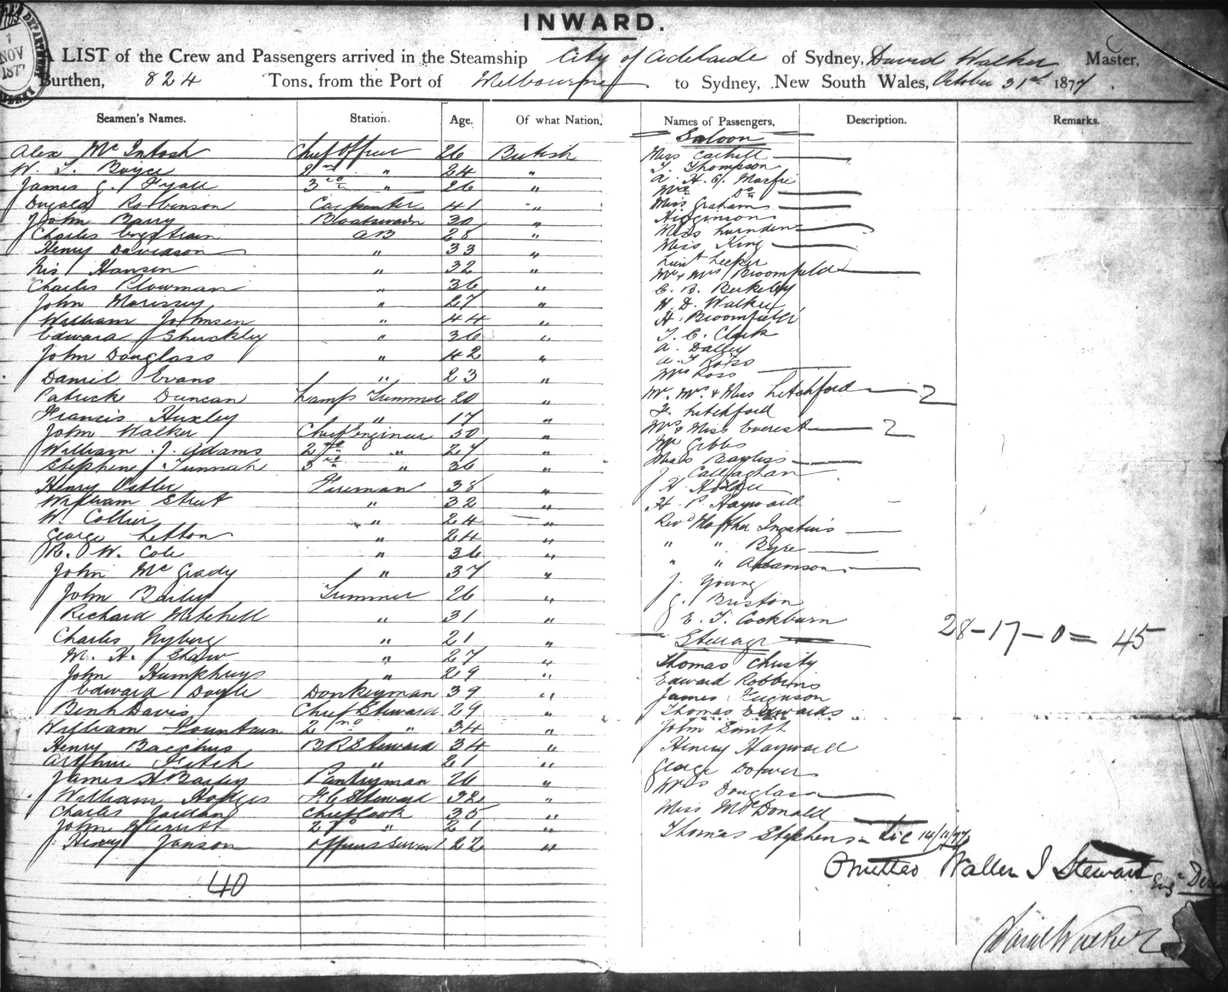 INWARD.
A LIST of the Crew and Passengers arrived in the Steamship City of Adelaide of Sydney, David Walker Master,
Burthen, 824 Tons, from the Port of Melbourne to Sydney, New South Wales, October 31st 1877
NOV
1877
Seamen's Names. Station. Age. Of what Nation. Names of Passengers, Description. Remarks.
Saloon
Alex Mc Intosh Chief Officer 26 British
W. J. Boyce 2nd " 24 "
James G. Fyall 3rd " 26 "
Dugald Robbinson Carpenter 41 "
John Barry Boatswain 30 "
Charles AB 28 "
Henry Davidson " 33 "
Hansen " 32 "
Charles Plowman " 36 "
John Morissey " 27 "
William Johnsen " 44 "
Edward Shuckley " 36 "
John Douglass " 42 "
Daniel Evans " 23 "
Patrick Duncan Lamp Trimmer 20 "
Francis Huxley " 17 "
John Walker Chief Engineer 50 "
William J. Adams 2nd " 27 "
Stephen Tunnah 3rd " 36 "
Henry Fireman 38 "
William Street " 32 "
W. Collier " 24 "
George Letton " 24 "
R. W. Cole " 36 "
John Mc Grady " 37 "
John Bailey Trimmer 26 "
Richard Mitchell " 31 "
Charles Nyberg " 21 "
M. H. Shaw " 27 "
John Humphreys " 29 "
Edward Doyle Donkeyman 39 "
Benh Davis Chief Steward 29 "
William 2nd " 34 "
Henry Bacchus B R Steward 34 "
Arthur Fitch " 21 "
James H Bailey Pantryman 26 "
William Hodges F.C Steward 32 "
Charles Chief Cook 35 "
John 2nd " 21 "
Henry Janson Officers Servant 22 "
40
Miss Cahill
T. Thompson
A. H. G. Morfie
Mrs Do
Miss Graham
Higginson
Miss
Miss King
Lieut
Mr & Mrs Broomfield
C. B. Berkeley
H. D. Walker
H. Broomfield
T. C. Clark
A. Dalley
A. J. Ross
Mrs Ross
Mr. Mrs & Miss Letchford 2
F. Letchford
Mrs & Miss Everest 2
Mr Gibbs
Miss Bayliss
J. Callaghan
H
H P Hayward
Revd Mother Ignatius
" " Byre
" " Adamson
J. Young
G. Briston
E. T. Cockburn
28-17-0= 45
Steerage
Thomas Christy
Edward Robbins
James Ferguson
Thomas Edwards
John Smith
Henery Hayward
George Dower
Mrs Douglass
Miss McDonald
Thomas Stephens 14/11/77
Omitted Walter J Stewart
David Walker